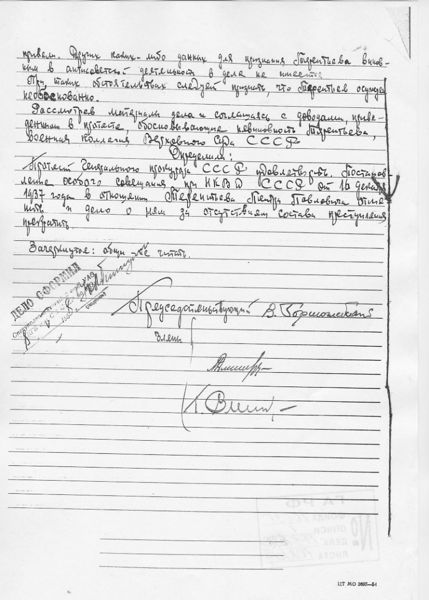 привели. Других каких-либо данных для признания Терентьева винов-
ным в антисоветской деятельности в деле не имеется
При таких обстоятельствах следует признать, что Терентьев осужден
необоснованно.
Рассмотрев материалы дела и соглашаясь с доводами, приве-
денными в протесте, обосновывающие невиновность Терентьева,
Военная Коллегия Верховного Суда СССР
Определила:
Протест Генерального прокурора СССР удовлетворить. Постанов-
ление особого совещания при НКВД СССР от 16 декабря
1937 года в отношении Терентьева Петра Павловича отме-
нить и дело о нем за отсутствием состава преступления
прекратить.
Зачеркнутое: читать.
ДЕЛО
Председательствующий В.
Члены
ГА РФ
ФОНД
ОПИСИ
ДЕЛА
ЛИСТА
№
ЦТ МО